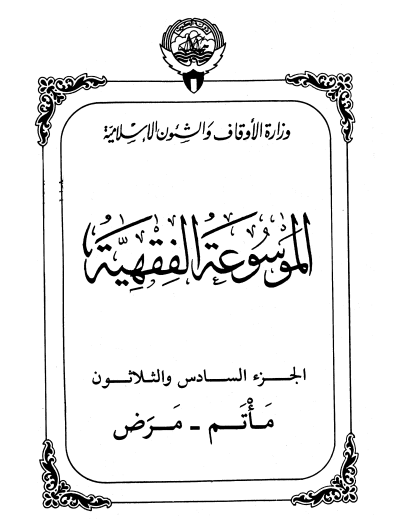 وزارة الأوقاف والشئون الإسلامية
الموسوعة الفقهية
الجزء السادس والثلاثون
مَأْتَم - مَرَض